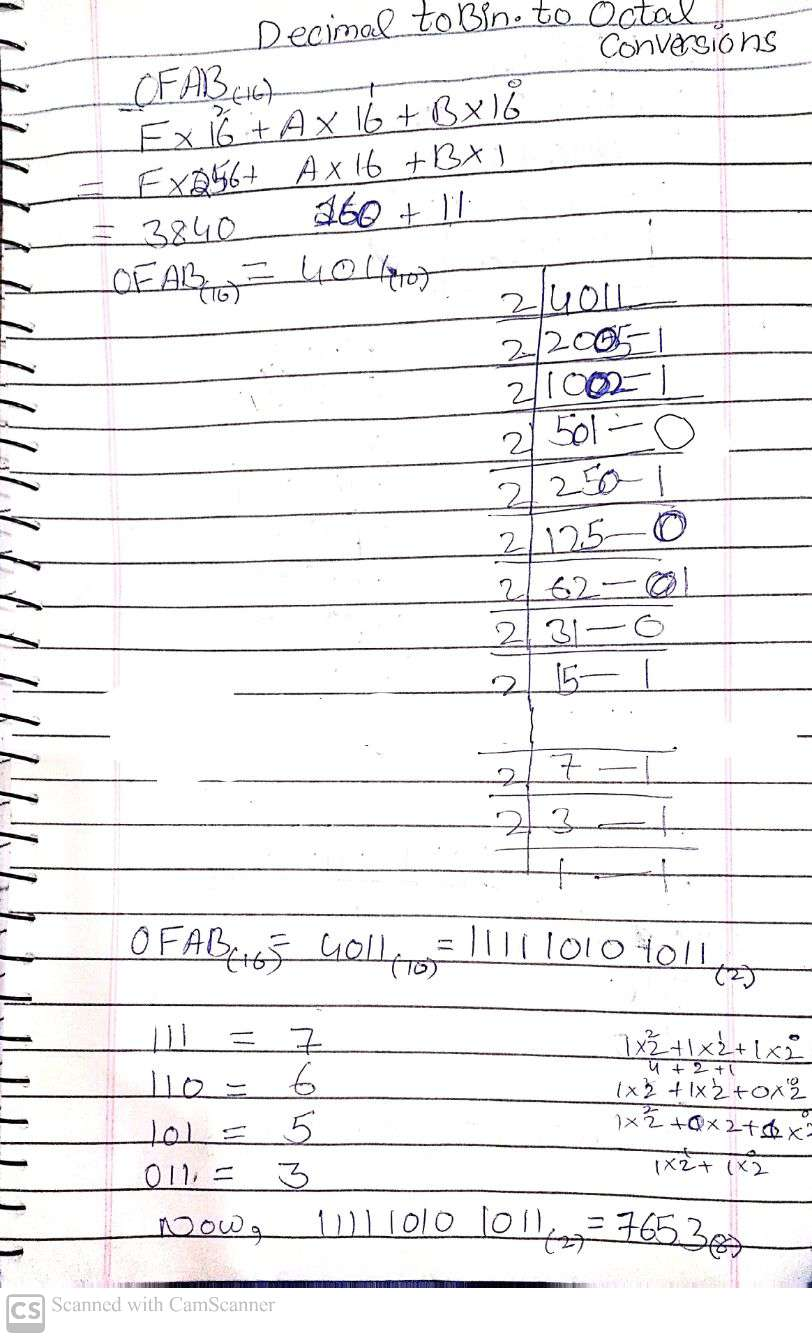 Decimal to Bin. to Octal
Conversions
OFAB(16)
F x 16² + A x 16¹ + B x 16⁰
= F x 256 + A x 16 + B x 1
= 3840 160 + 11
OFAB(16) = 4011(10)
2 | 4011
2 | 2005 - 1
2 | 1002 - 1
2 | 501 - 0
2 | 250 - 1
2 | 125 - 0
2 | 62 - 1
2 | 31 - 0
2 | 15 - 1
2 | 7 - 1
2 | 3 - 1
1 - 1
OFAB(16) = 4011(10) = 11111010 1011(2)
111 = 7 1x2²+1x2¹+1x2⁰
4 + 2 + 1
110 = 6 1x2² + 1x2¹ + 0x2⁰
101 = 5 1x2² + 0x2 + 1x2⁰
011 = 3 1x2¹ + 1x2⁰
Now, 11111010 1011(2) = 7653(8)
CS Scanned with CamScanner